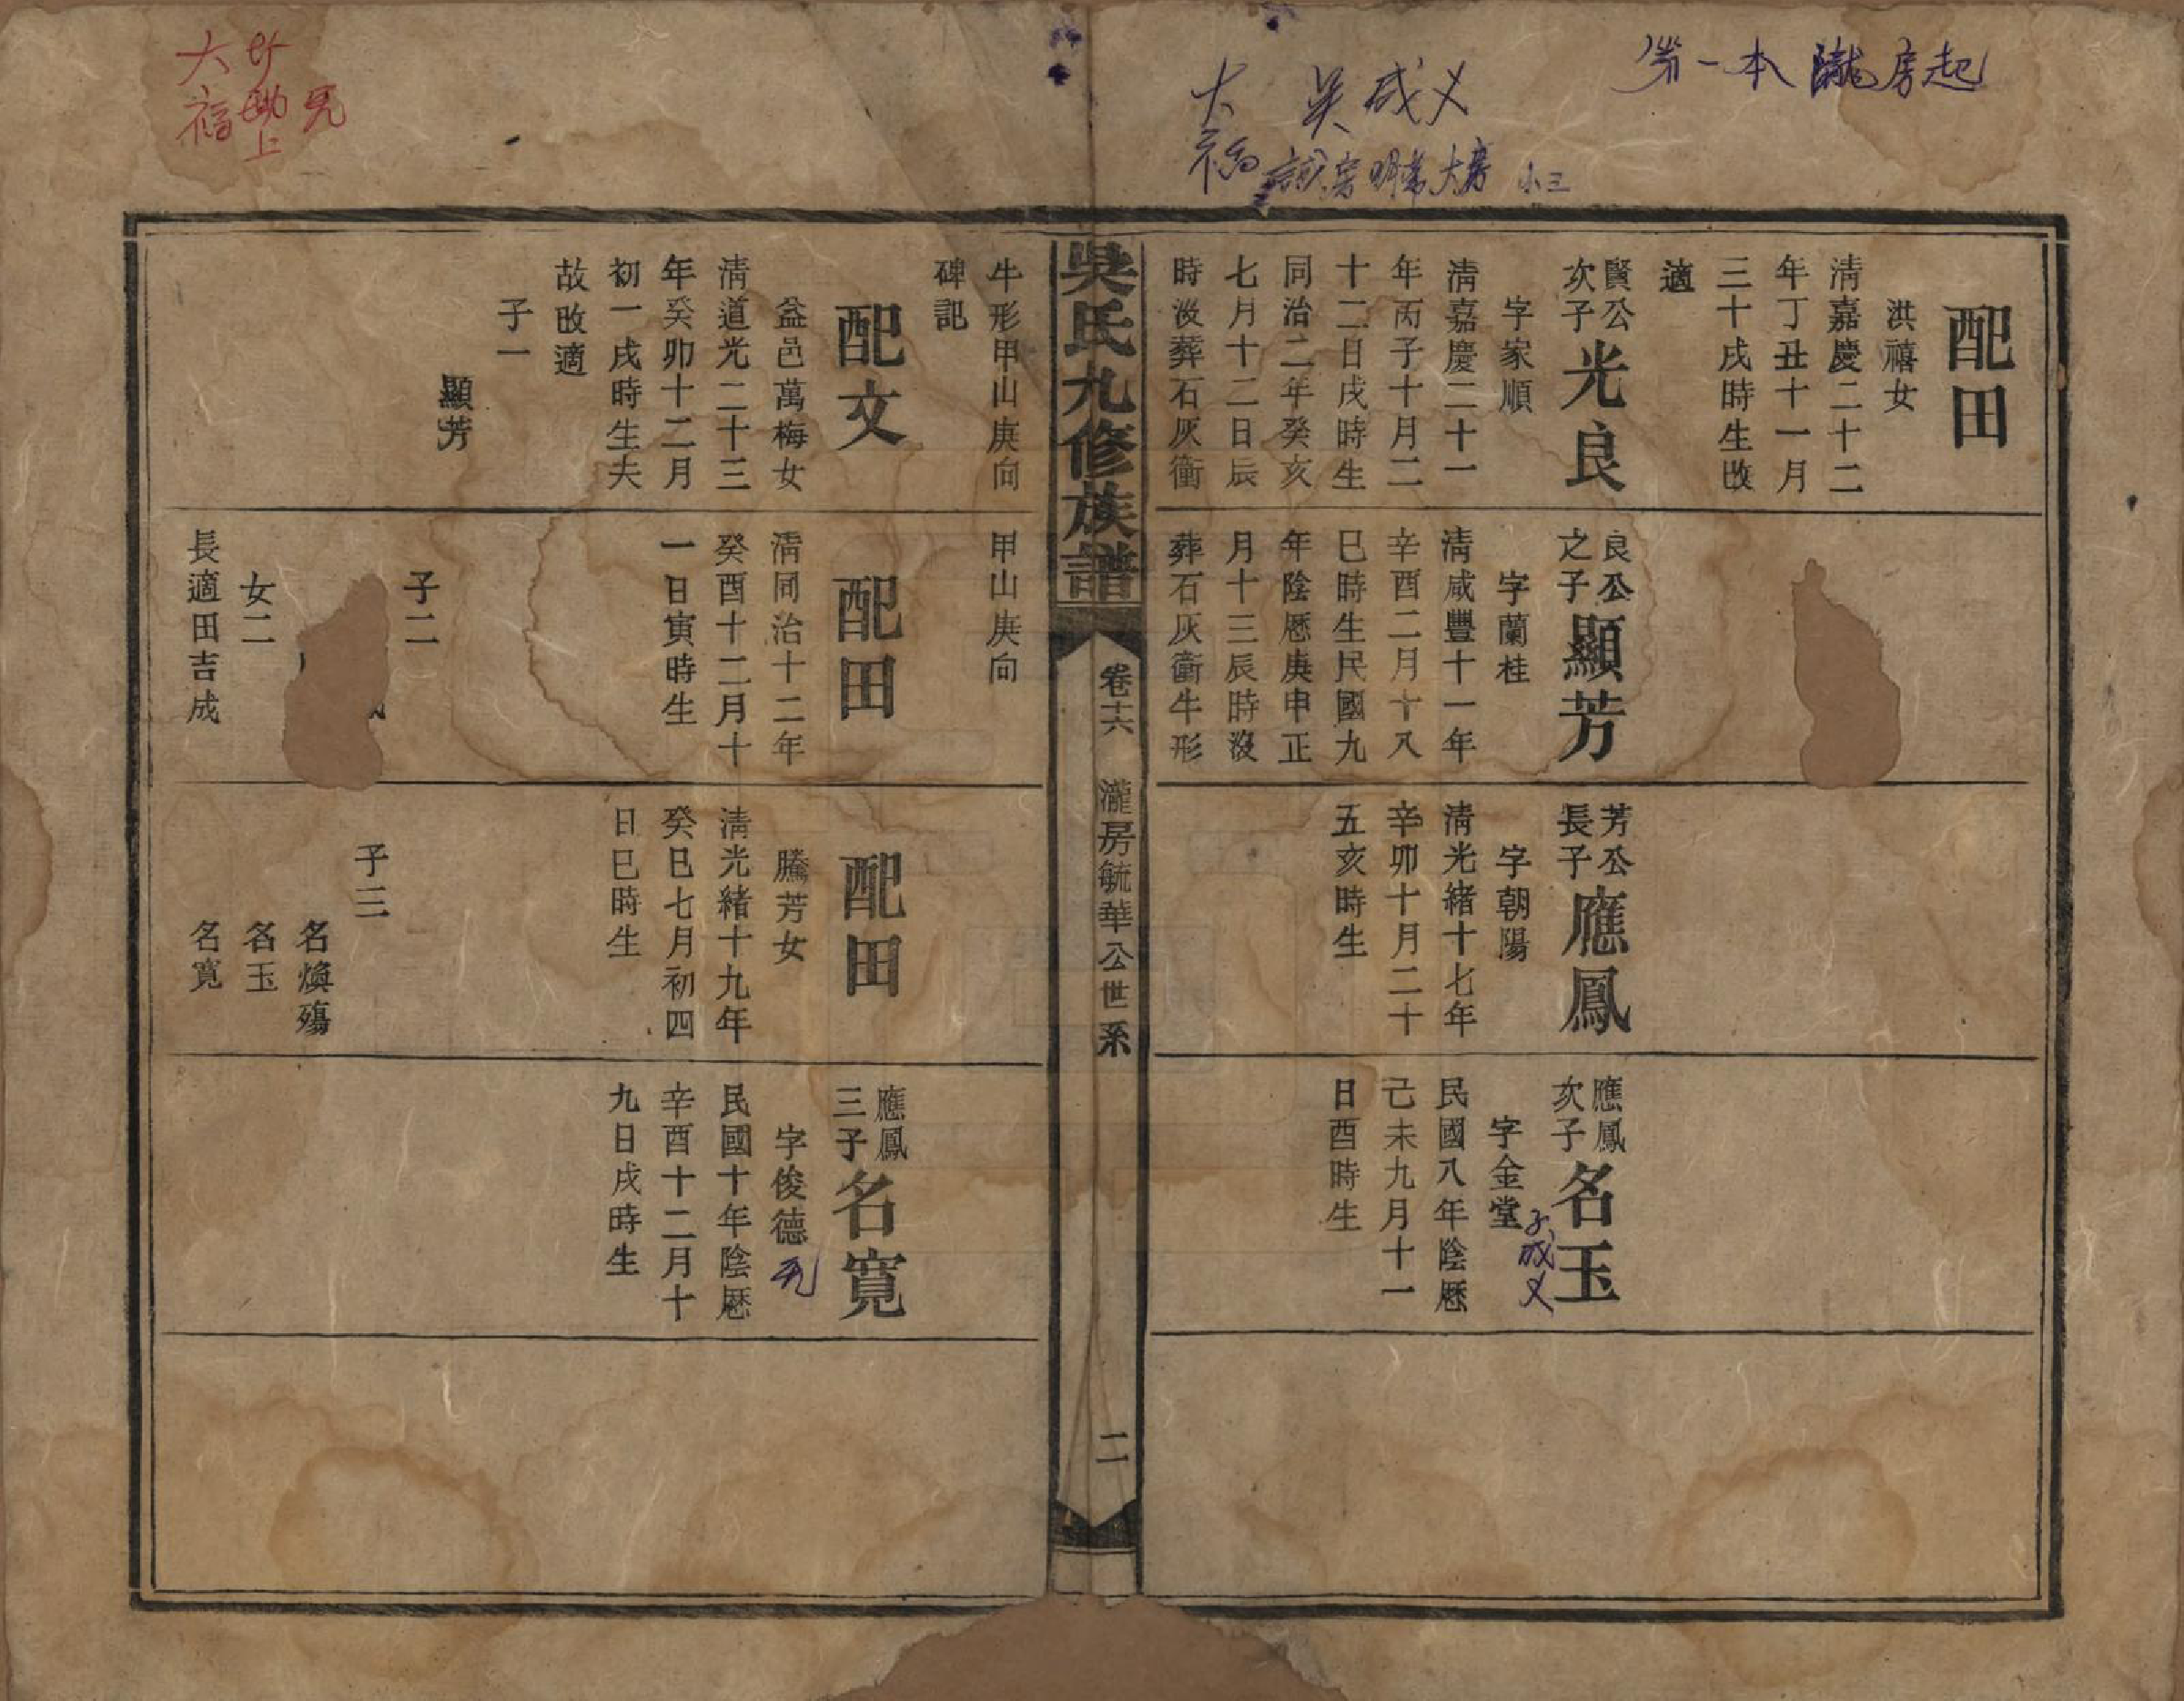 第一本瀧房起
吳成义
大福
誠房明常大房 小三
配田
洪禧女
清嘉慶二十二
年丁丑十一月
三十戌時生改
適
賢公
次子
光良
字家順
清嘉慶二十一
年丙子十月二
十二日戌時生
同治二年癸亥
七月十二日辰
時没葬石灰衝
良公
之子
顯芳
字蘭桂
清咸豐十一年
辛酉二月十八
巳時生民國九
年陰厯庚申正
月十三辰時没
葬石灰衝牛形
芳公
長子
應鳳
字朝陽
清光緒十七年
辛卯十月二十
五亥時生
應鳳
次子
名玉
子成义
字金堂
民國八年陰厯
己未九月十一
日酉時生
吳氏九修族譜
卷十六 瀧房毓華公世系
二
大福
牛形甲山庚向
碑記
配文
益邑萬梅女
清道光二十三
年癸卯十二月
初一戌時生夫
故改適
子一
顯芳
甲山庚向
配田
清同治十二年
癸酉十二月十
一日寅時生
子二
女二
長適田吉成
配田
騰芳女
清光緒十九年
癸巳七月初四
日巳時生
子三
名煥殤
名玉
名寬
應鳳
三子
名寬
字俊德
民國十年陰厯
辛酉十二月十
九日戌時生